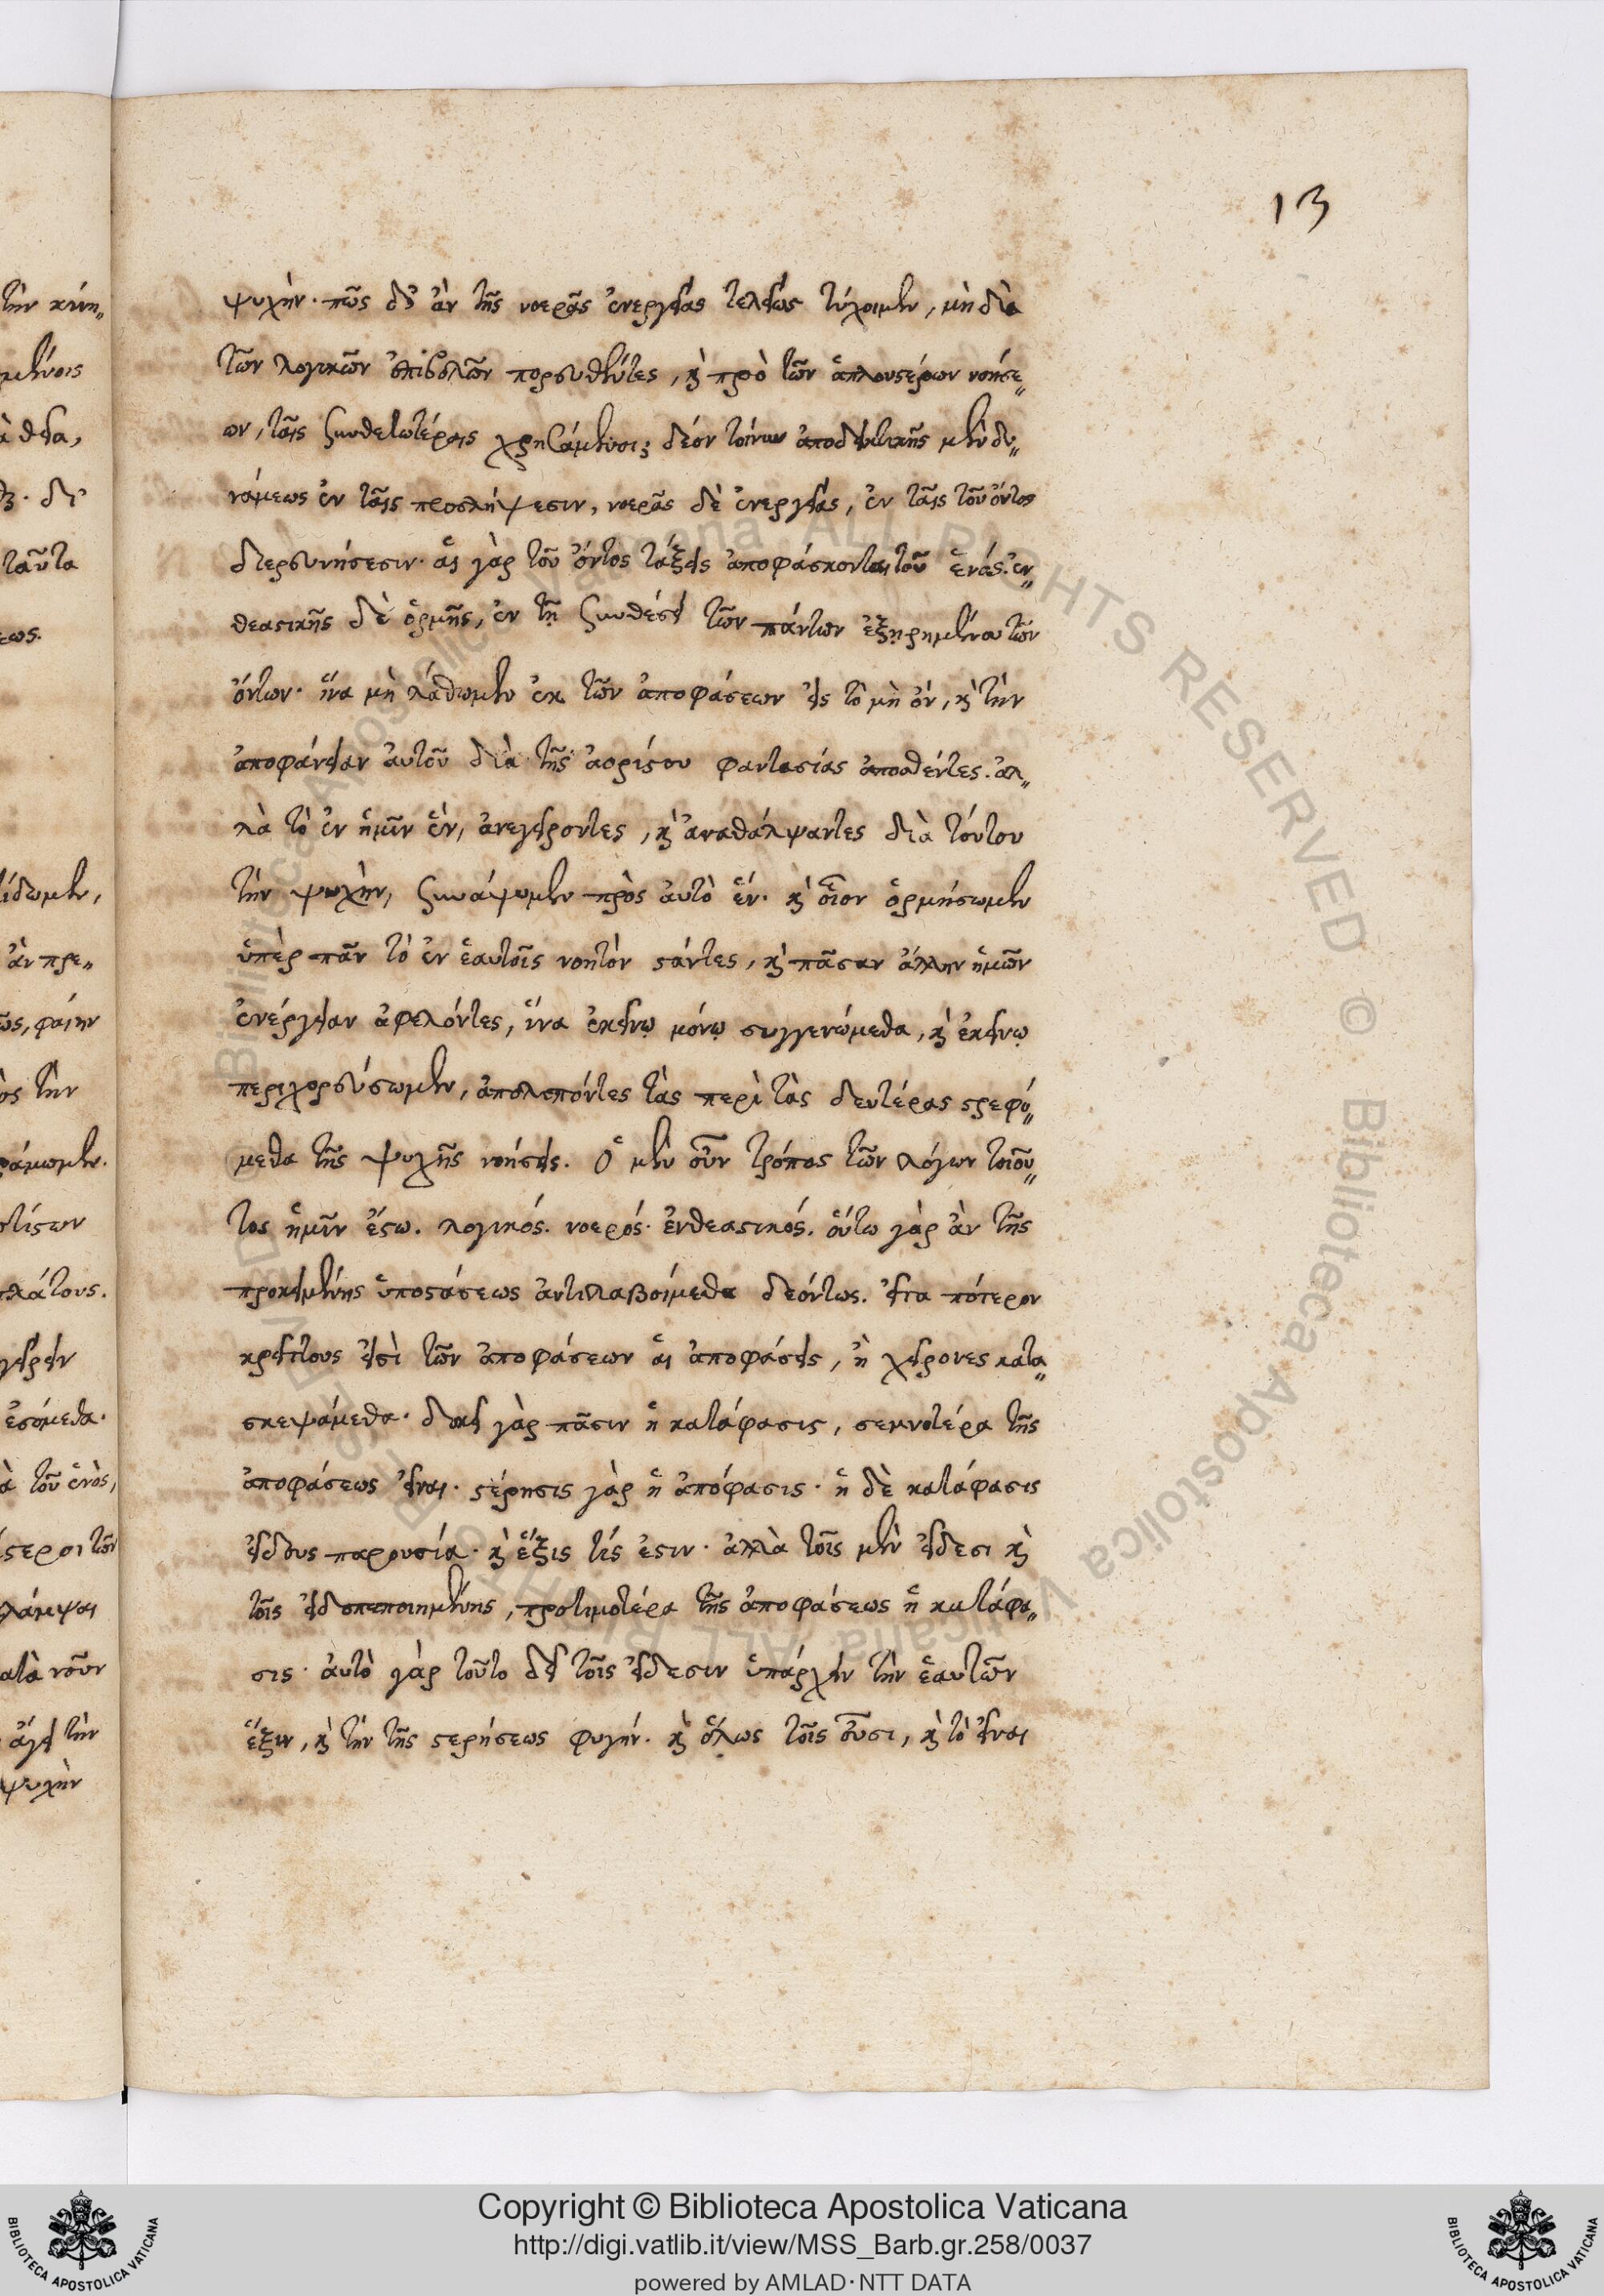 13
ψυχήν· πῶς δ' ἂν τῆς νοερᾶς ἐνεργείας τελείως τύχοιμεν, μὴ διὰ
τῶν λογικῶν ἐπιβολῶν πορευθέντες, καὶ πρὸ τῶν ἁπλουστέρων νοήσε„
ων, ταῖς συνθετωτέραις χρησάμενοι; δέον τοίνυν ἀποδεικτικῆς μὲν δυ„
νάμεως ἐν ταῖς προσλήψεσιν, νοερᾶς δὲ ἐνεργείας, ἐν ταῖς τοῦ ὄντος
διερευνήσεσιν· αἱ γὰρ τοῦ ὄντος τάξεις ἀποφάσκονται τοῦ ἑνός. ἐν„
θεαστικῆς δὲ ὁρμῆς, ἐν τῇ συνθέσει τῶν πάντων ἐξῃρημένου τῶν
ὄντων· ἵνα μὴ λάθωμεν ἐκ τῶν ἀποφάσεων εἰς τὸ μὴ ὄν, καὶ τὴν
ἀποφάνειαν αὐτοῦ διὰ τῆς ἀορίστου φαντασίας ἀποσθέντες. ἀλ„
λὰ τὸ ἐν ἡμῖν ἕν, ἀνεγείροντες, καὶ ἀναθάλψαντες διὰ τούτου
τὴν ψυχὴν, συνάψωμεν πρὸς αὐτὸ ἕν. καὶ οἷον ὁρμήσωμεν
ὑπὲρ πᾶν τὸ ἐν ἑαυτοῖς νοητὸν στάντες, καὶ πᾶσαν ἄλλην ἡμῶν
ἐνέργειαν ἀφελόντες, ἵνα ἐκείνῳ μόνῳ συγγενώμεθα, καὶ ἐκείνῳ
περιχορεύσωμεν, ἀπολιπόντες τὰς περὶ τὰς δευτέρας στρεφό„
μεθα τῆς ψυχῆς νοήσεις. Ὁ μὲν οὖν τρόπος τῶν λόγων τοιοῦ„
τος ἡμῖν ἔστω. λογικός. νοερός. ἐνθεαστικός. οὕτω γὰρ ἂν τῆς
προκειμένης ὑποστάσεως ἀντιλαβοίμεθα δεόντως. εἶτα πότερον
κρείττους εἰσὶ τῶν ἀποφάσεων αἱ ἀποφάσεις, ἢ χείρονες κατα„
σκεψάμεθα. δοκεῖ γὰρ πᾶσιν ἡ κατάφασις, σεμνοτέρα τῆς
ἀποφάσεως εἶναι. στέρησις γὰρ ἡ ἀπόφασις. ἡ δὲ κατάφασις
εἴδους παρουσία. καὶ ἕξις τίς ἐστιν. ἀλλὰ τοῖς μὲν εἴδεσι καὶ
τοῖς εἰδοπεποιημένης, προτιμοτέρα τῆς ἀποφάσεως ἡ κατάφα„
σις. αὐτὸ γὰρ τοῦτο δεῖ τοῖς εἴδεσιν ὑπάρχειν τὴν ἑαυτῶν
ἕξιν, καὶ τὴν τῆς στερήσεως φυγήν. καὶ ὅλως τοῖς οὖσι, καὶ τὸ εἶναι
Copyright © Biblioteca Apostolica Vaticana
http://digi.vatlib.it/view/MSS_Barb.gr.258/0037
powered by AMLAD·NTT DATA